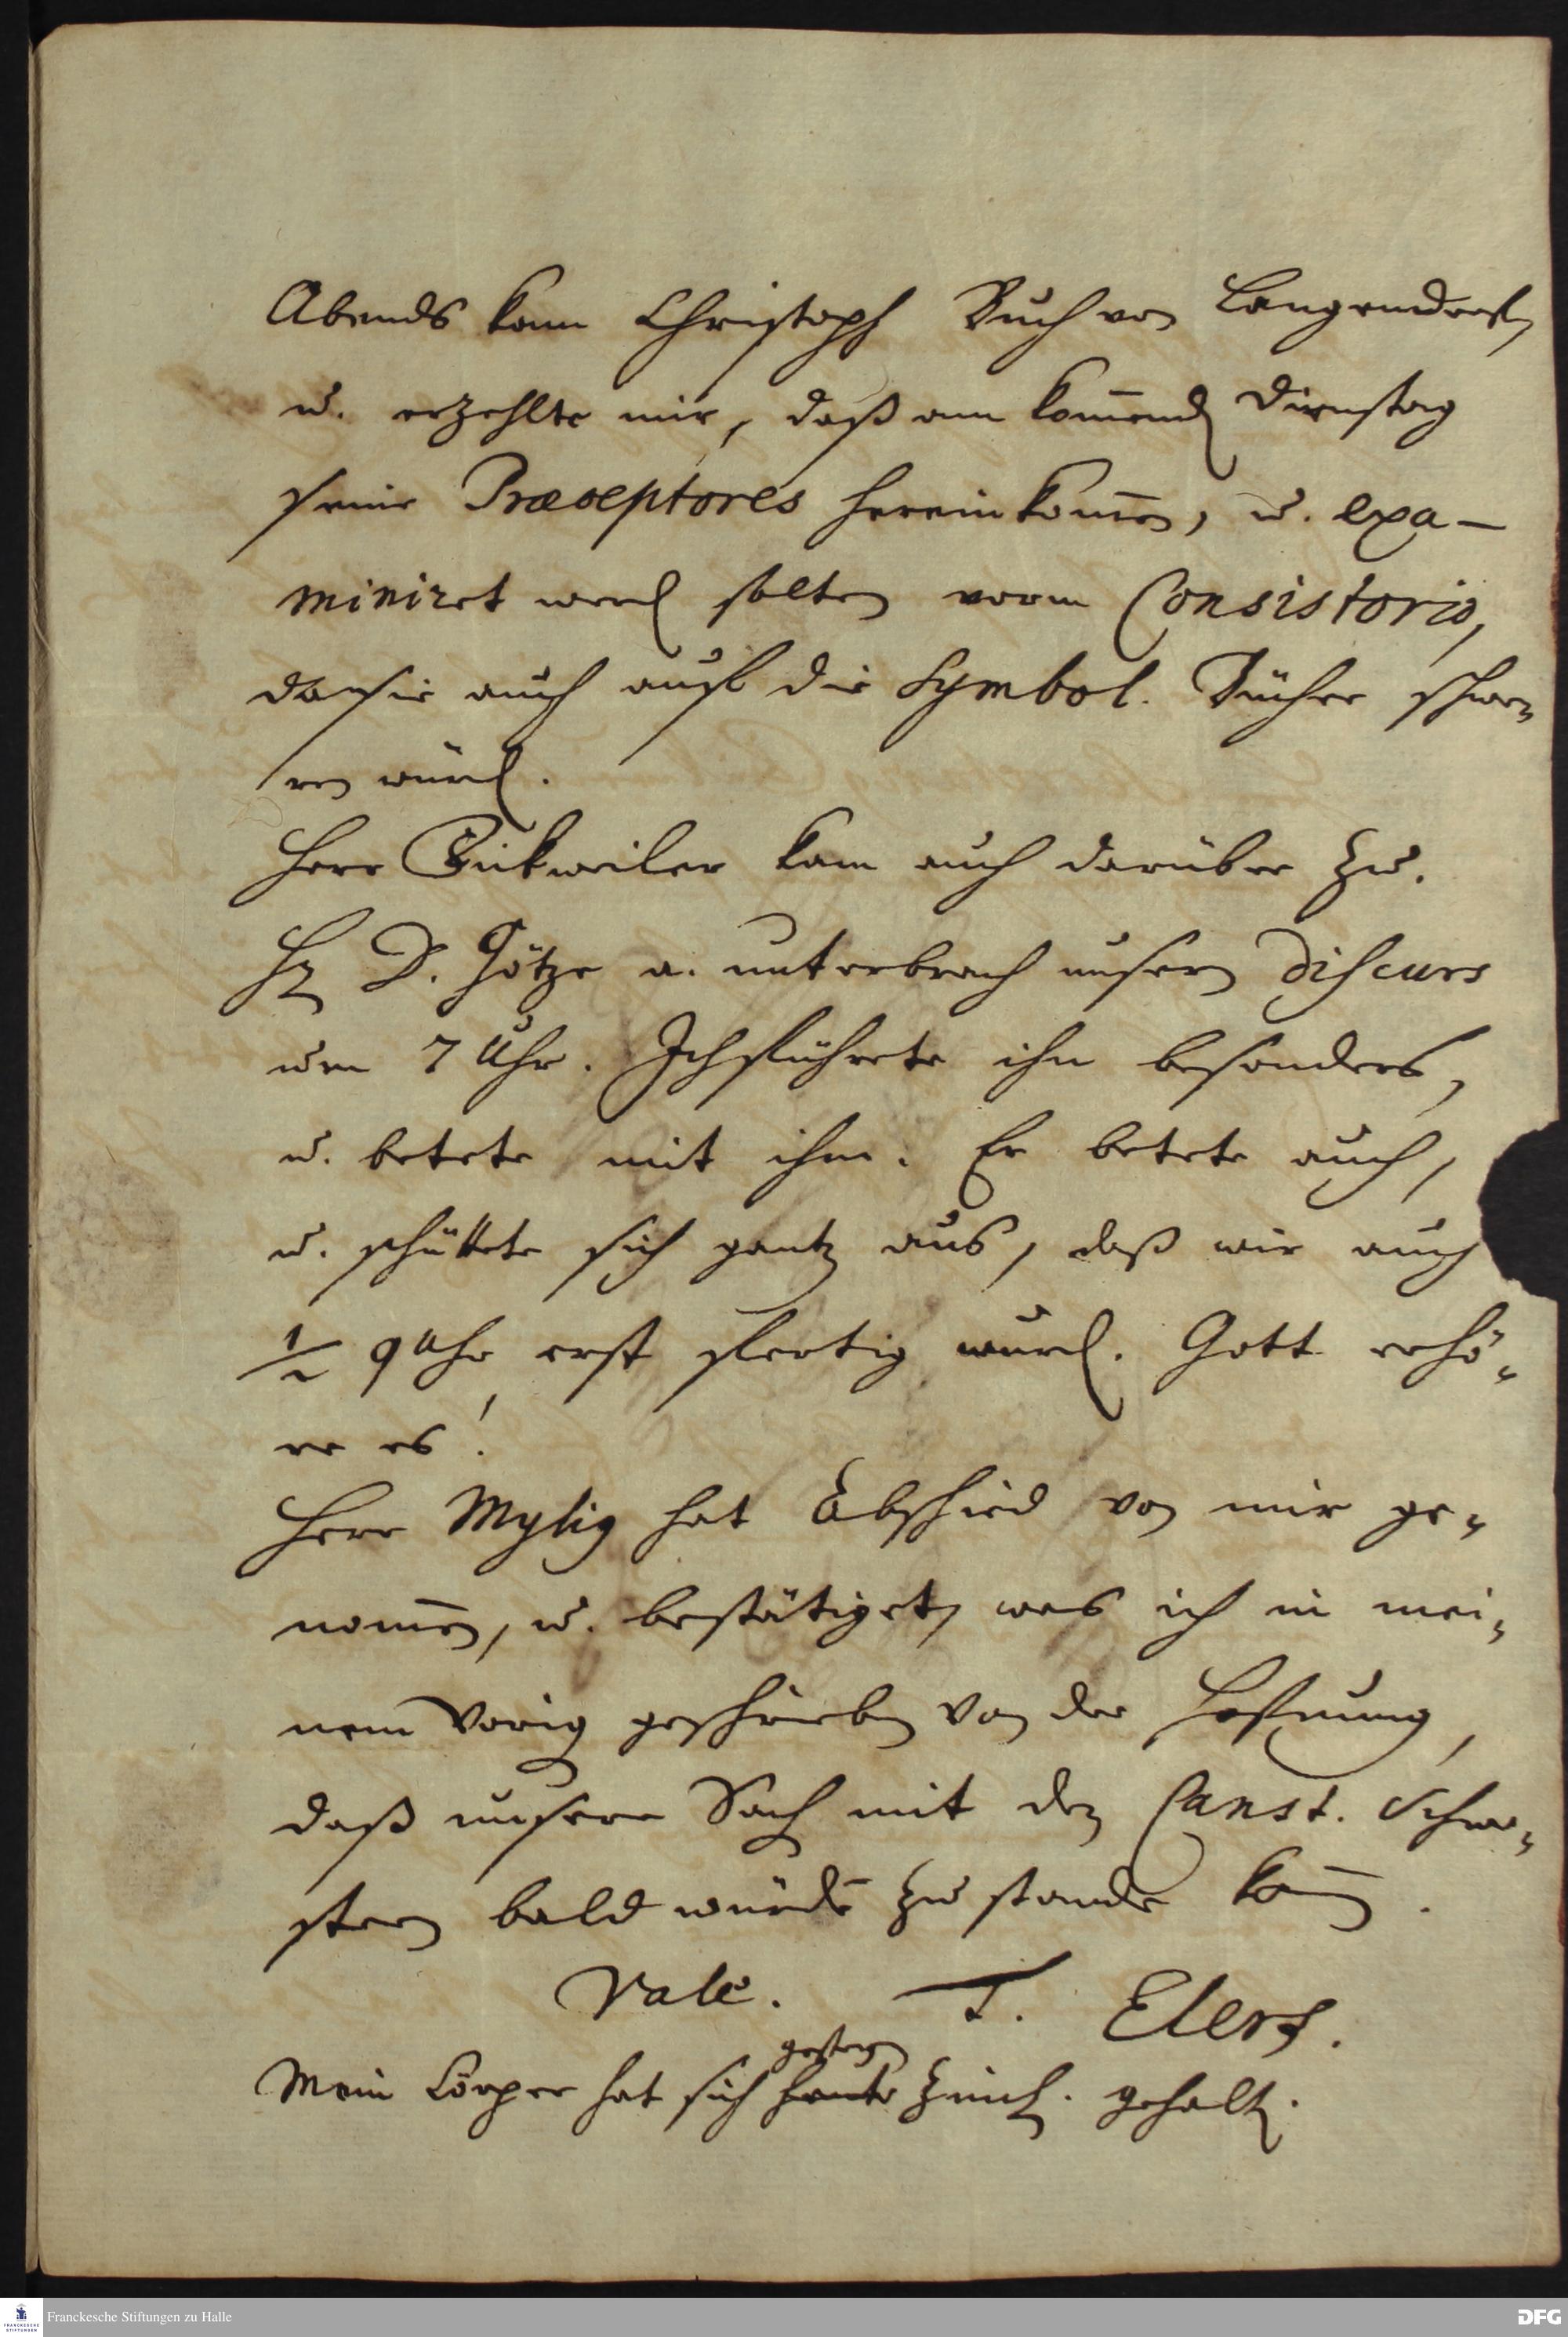 Abends kam Christoph Buch von Langendorf,
u. erzehlte mir, daß am kom̄end Dienstag
seine Præceptores hereinkom̄en, u. exa-
miniret werd solten vorm Consistorio,
da sie auch auf die Symbol. Bücher schwe-
ren würd.
Herr kam auch darüber zu.
H D. Götze a. unterbrach unsern Discurs
um 7 Uhr. Ich führete ihn besonders,
u. betete mit ihm. Er betete auch,
u. schüttete sich gantz aus, daß wir auch
1/2 9 Uhr erst fertig wurd. Gott erhö-
re es!
Herr Mylig hat Abschied von mir ge-
nom̄en, u. bestätiget, was ich in mei-
nem Vorig geschrieben von der Hofnung,
daß unsere Sach mit den Canst. Schwe-
stern bald würde zu stande kom̄.
Vale. T. Elers.
gestern
Mein Cörper hat sich heute ziml. gehalt.
Franckesche Stiftungen zu Halle
DFG